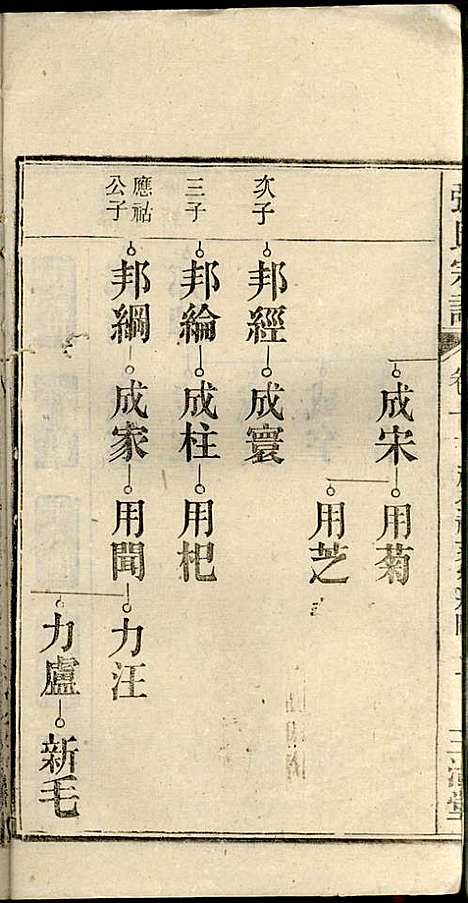 成宋 用菊
用芝
次子 邦經 成寰
三子 邦綸 成柱 用杷
應祜公子 邦綱 成家 用聞 力汪
力廬 新毛